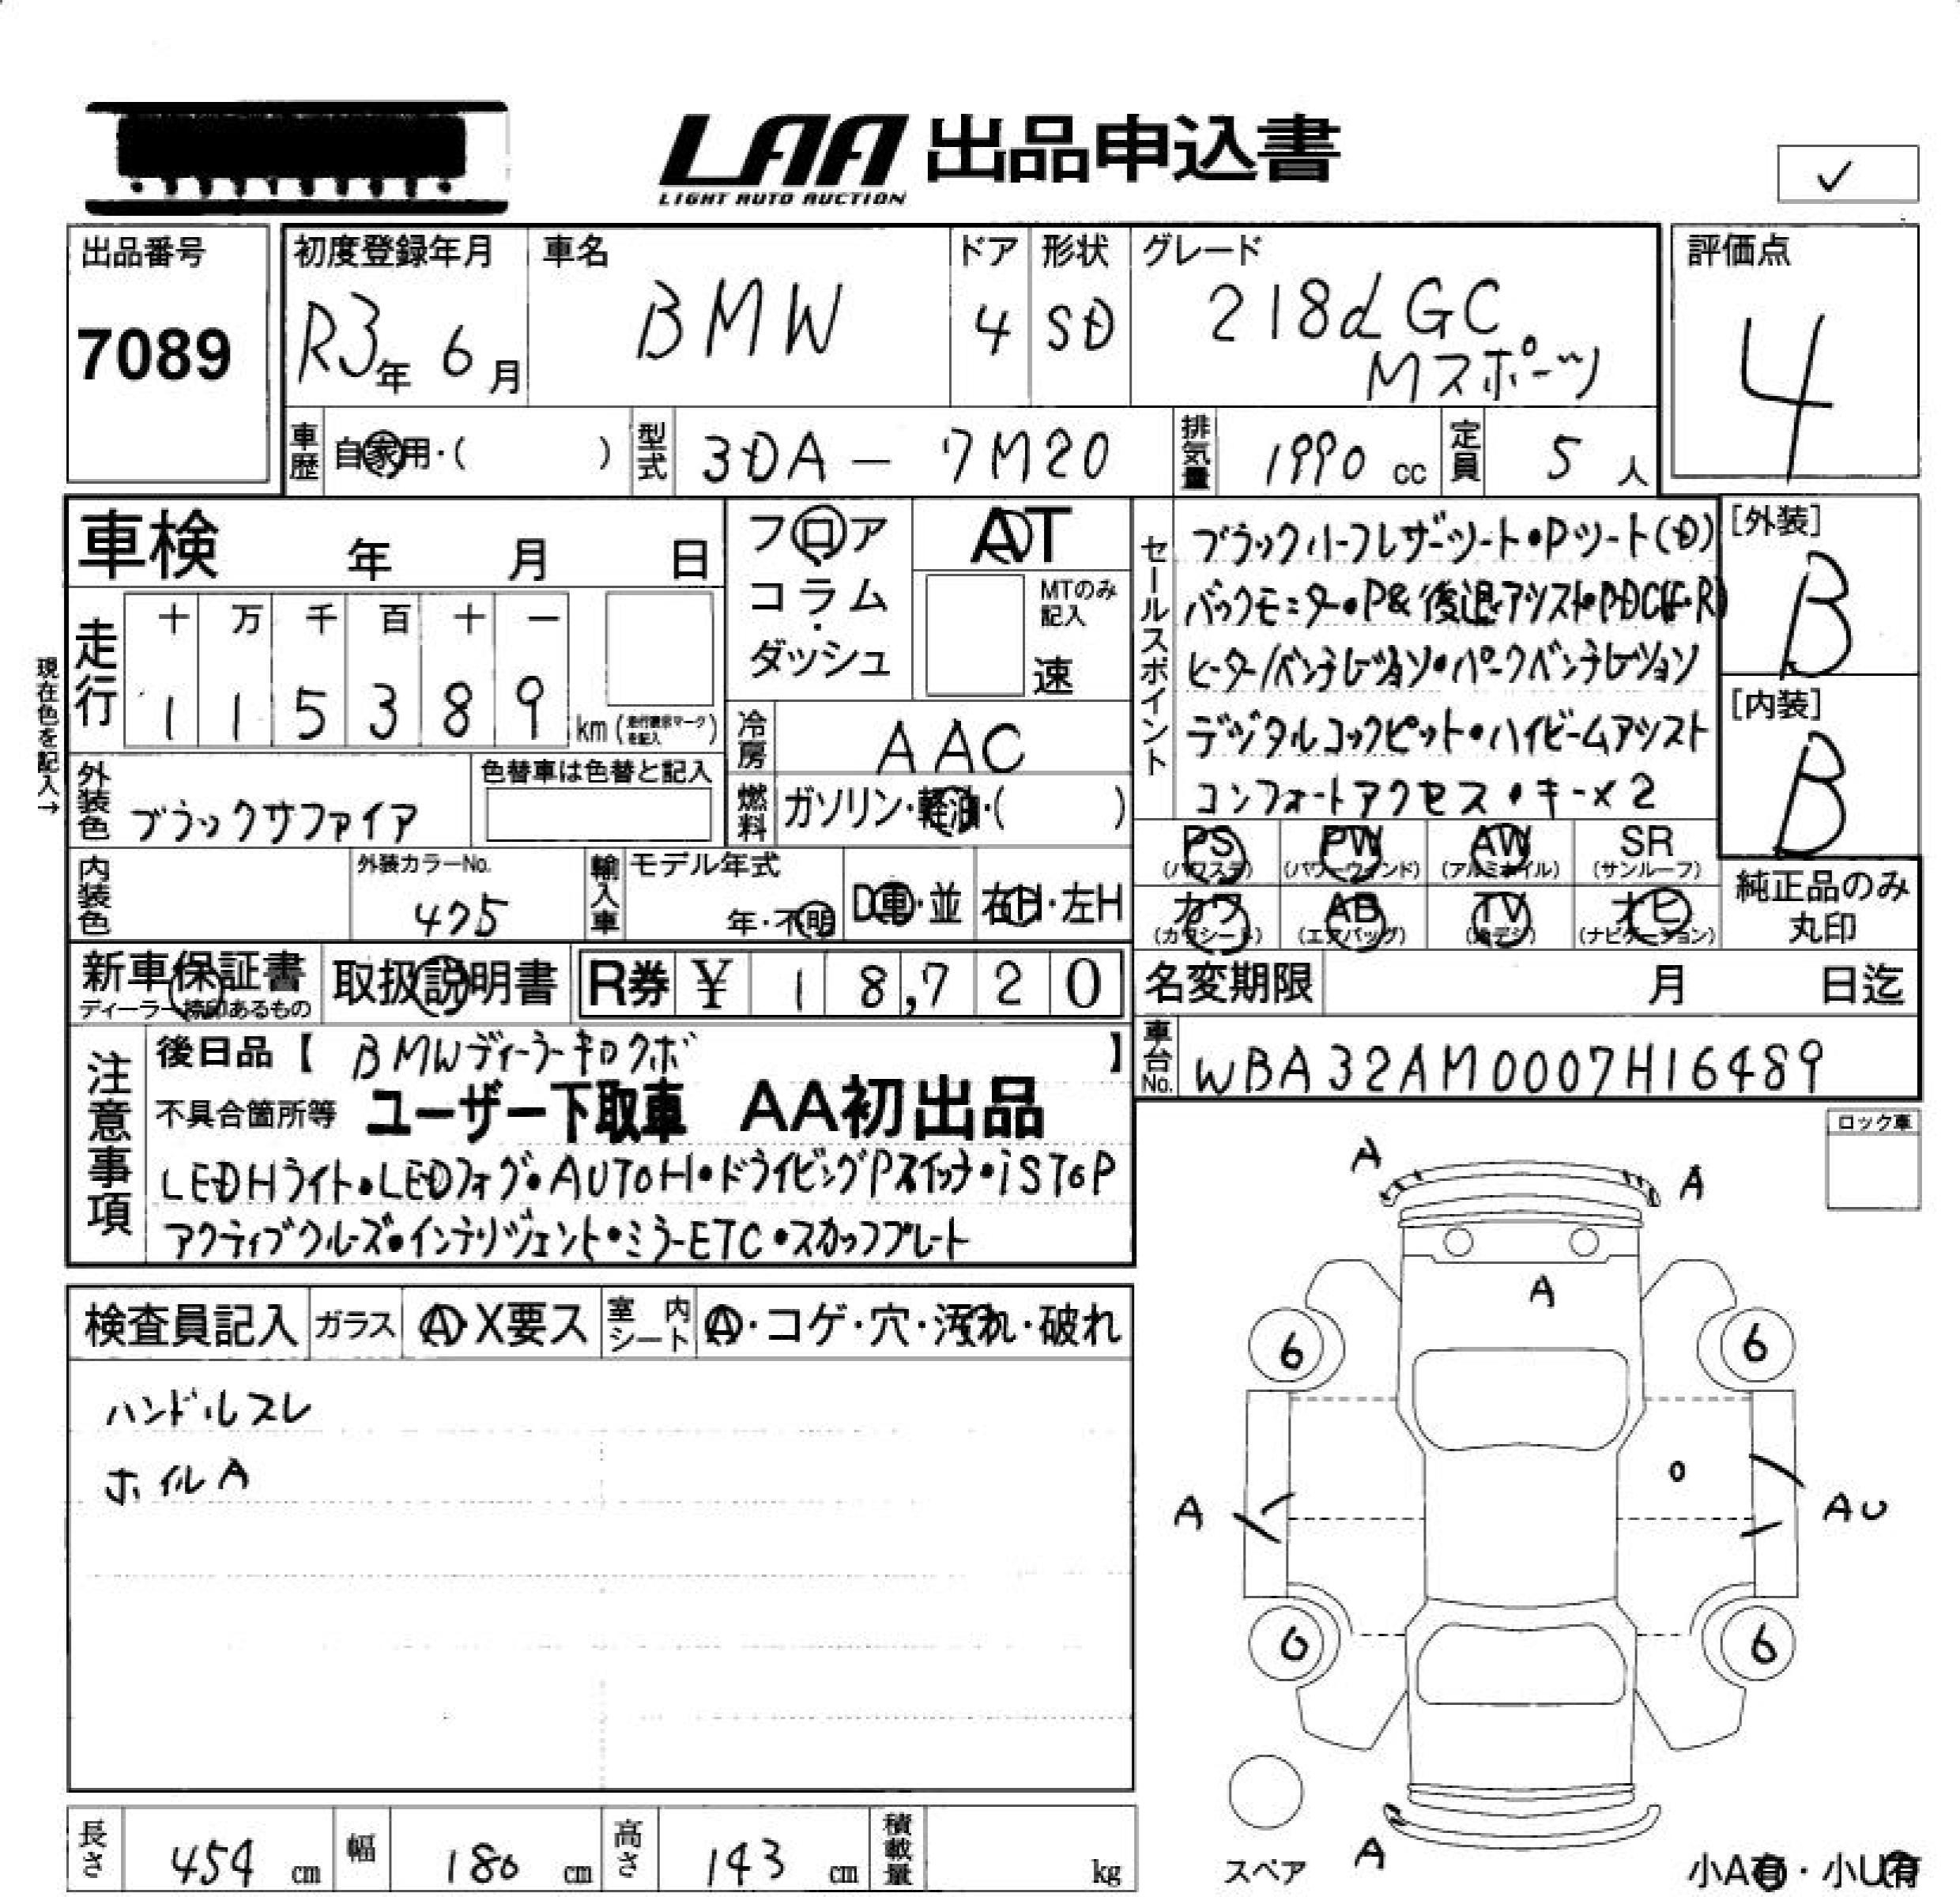 LAA 出品申込書
LIGHT AUTO AUCTION
✓
出品番号 初度登録年月 車名 ドア 形状 グレード 評価点
7089 R3年 6月 BMW 4 SD 218d GC 4
Mスポーツ
車歴 自家用・( ) 型式 3DA-7M20 排気量 1990 cc 定員 5 人
車検 年 月 日
フロア
コラム
・
ダッシュ
AT
MTのみ
記入
速
現在色を記入→
走行 十 万 千 百 十 一
1 1 5 3 8 9 km (走行表示マークを記入)
冷房 AAC
燃料 ガソリン・軽油・( )
外装色 ブラックサファイア
色替車は色替と記入
内装色
外装カラーNo.
475
輸入車 モデル年式
年・不明 D車・並 右H・左H
セールスポイント
ブラックハーフレザーシート・Pシート(D)
バックモニター・P&後退アシスト・PDC(F・R)
ヒーター/ベンチレーション・パークベンチレーション
デジタルコックピット・ハイビームアシスト
コンフォートアクセス・キー×2
[外装]
B
[内装]
B
PS PW AW SR
(パワステ) (パワーウィンド) (アルミホイル) (サンルーフ)
カワ AB TV ナビ
(カワシート) (エアバッグ) (地デジ) (ナビゲーション)
純正品のみ
丸印
新車保証書
ディーラー捺印あるもの
取扱説明書
R券 ¥ 18,720
名変期限 月 日迄
車台No. WBA32AM0007H16489
注意事項
後日品【 BMWディーラーキロクボ 】
不具合箇所等 ユーザー下取車 AA初出品
LEDHライト・LEDフォグ・AUTOH・ドライビングPスイッチ・iSTOP
アクティブクルーズ・インテリジェント・ミラーETC・スカッフプレート
ロック車
検査員記入 ガラス A・X要ス 室内シート A・コゲ・穴・汚れ・破れ
ハンドルスレ
ホイルA
A
A
A
6
6
A
AU
6
6
スペア
A
小A有・小U有
長さ 454 cm 幅 180 cm 高さ 143 cm 積載量 kg